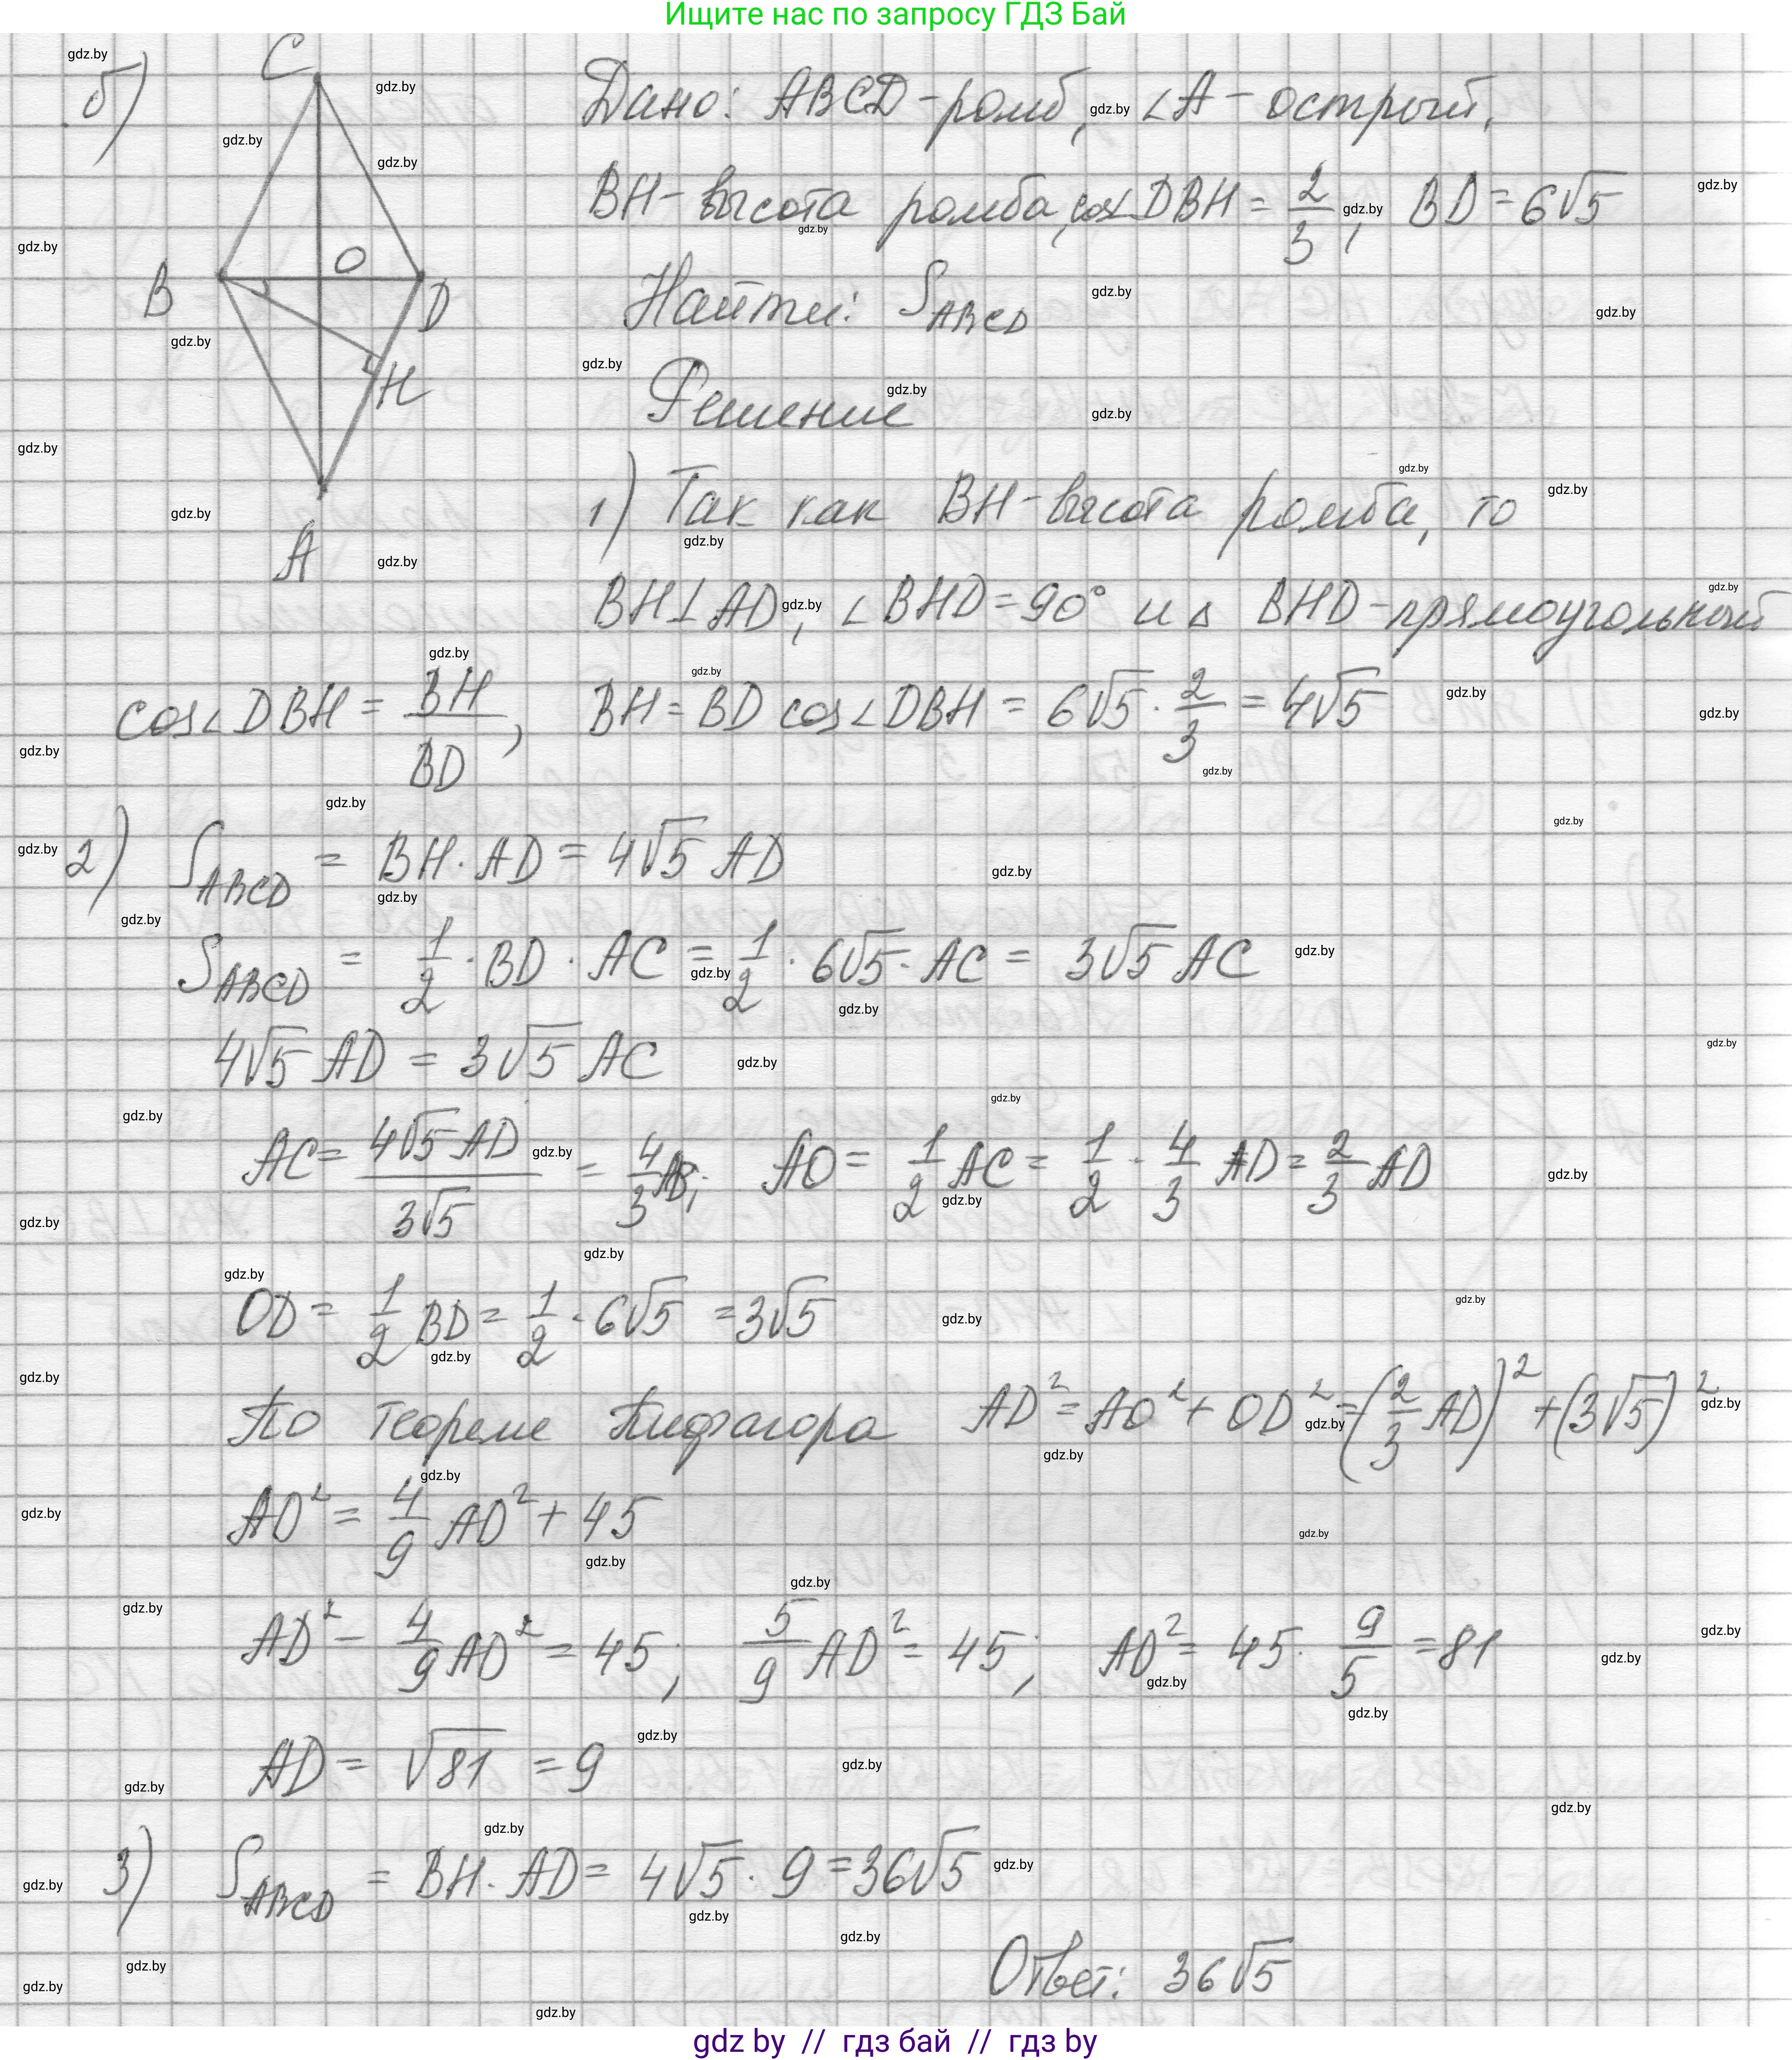 Ищите нас по запросу ГДЗ Бай
б)
C
B
O
D
H
A
Дано: ABCD - ромб, ∠A - острый,
BH - высота ромба, cos∠DBH = 2/3, BD = 6√5
Найти: S_ABCD
Решение
1) Так как BH - высота ромба, то
BH⊥AD, ∠BHD = 90° и △ BHD - прямоугольный
cos∠DBH = BH/BD, BH = BD cos∠DBH = 6√5 · 2/3 = 4√5
2) S_ABCD = BH · AD = 4√5 AD
S_ABCD = 1/2 · BD · AC = 1/2 · 6√5 · AC = 3√5 AC
4√5 AD = 3√5 AC
AC = 4√5 AD / 3√5 = 4/3 AD; AO = 1/2 AC = 1/2 · 4/3 AD = 2/3 AD
OD = 1/2 BD = 1/2 · 6√5 = 3√5
По теореме Пифагора AD² = AO² + OD² = (2/3 AD)² + (3√5)²
AD² = 4/9 AD² + 45
AD² - 4/9 AD² = 45; 5/9 AD² = 45; AD² = 45 · 9/5 = 81
AD = √81 = 9
3) S_ABCD = BH · AD = 4√5 · 9 = 36√5
Ответ: 36√5
gdz by // гдз бай // гдз by